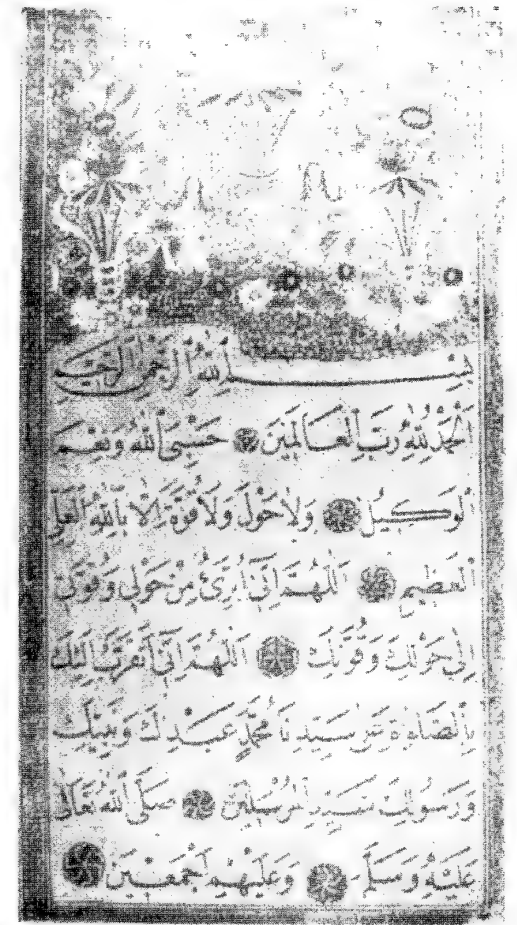 بِسْمِ اللهِ الرَّحْمٰنِ الرَّحِيمِ
اَلْحَمْدُ لِلّٰهِ رَبِّ الْعَالَمِينَ حَسْبِيَ اللهُ وَنِعْمَ
الْوَكِيلُ وَلَا حَوْلَ وَلَا قُوَّةَ اِلَّا بِاللهِ الْعَلِيِّ
الْعَظِيمِ اَللّٰهُمَّ اِنِّي اَبْرَئُ مِنْ حَوْلِي وَقُوَّتِي
اِلٰى حَوْلِكَ وَقُوَّتِكَ اَللّٰهُمَّ اِنِّي اَتَقَرَّبُ اِلَيْكَ
بِالصَّلٰوةِ سَيِّدِنَا مُحَمَّدٍ عَبْدِكَ وَنَبِيِّكَ
وَرَسُولِكَ سَيِّدِ الْمُرْسَلِينَ صَلَّى اللهُ تَعَالٰى
عَلَيْهِ وَسَلَّمَ وَعَلَيْهِمْ اَجْمَعِينَ